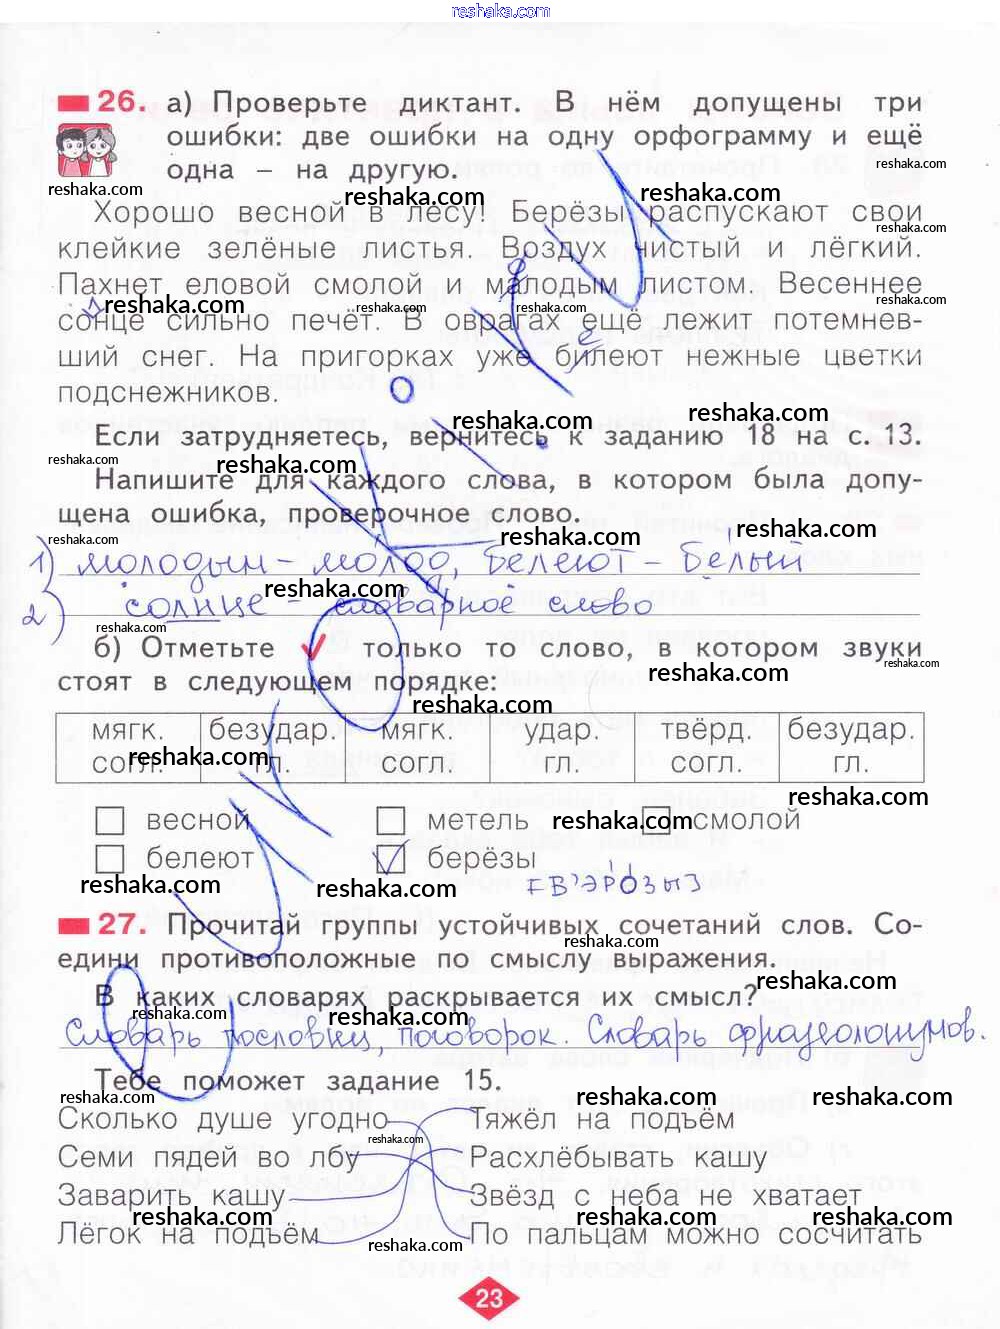 reshaka.com
26. а) Проверьте диктант. В нём допущены три
ошибки: две ошибки на одну орфограмму и ещё
одна – на другую.
reshaka.com
reshaka.com reshaka.com reshaka.com
Хорошо весной в лесу! Берёзы распускают свои
reshaka.com
клейкие зелёные листья. Воздух чистый и лёгкий.
Пахнет еловой смолой и малодым листом. Весеннее
reshaka.com reshaka.com reshaka.com reshaka.com
л
сонце сильно печёт. В оврагах ещё лежит потемнев-
о е
ший снег. На пригорках уже билеют нежные цветки
подснежников.
reshaka.com reshaka.com
Если затрудняетесь, вернитесь к заданию 18 на с. 13.
reshaka.com reshaka.com reshaka.com
Напишите для каждого слова, в котором была допу-
щена ошибка, проверочное слово.
reshaka.com reshaka.com reshaka.com
1) молодым – молод, белеют – белый
reshaka.com
2) солнце – словарное слово
reshaka.com
б) Отметьте только то слово, в котором звуки
reshaka.com reshaka.com
стоят в следующем порядке:
reshaka.com
мягк. безудар. мягк. удар. твёрд. безудар.
согл. гл. согл. гл. согл. гл.
reshaka.com reshaka.com
reshaka.com
весной метель смолой
reshaka.com
белеют берёзы
reshaka.com reshaka.com
27. Прочитай группы устойчивых сочетаний слов. Со-
reshaka.com
едини противоположные по смыслу выражения.
reshaka.com
В каких словарях раскрывается их смысл?
reshaka.com
Словарь пословиц, поговорок. Словарь фразеологизмов.
Тебе поможет задание 15.
reshaka.com reshaka.com reshaka.com
Сколько душе угодно Тяжёл на подъём
reshaka.com
Семи пядей во лбу Расхлёбывать кашу
Заварить кашу Звёзд с неба не хватает
reshaka.com reshaka.com reshaka.com
Лёгок на подъём По пальцам можно сосчитать
reshaka.com
23